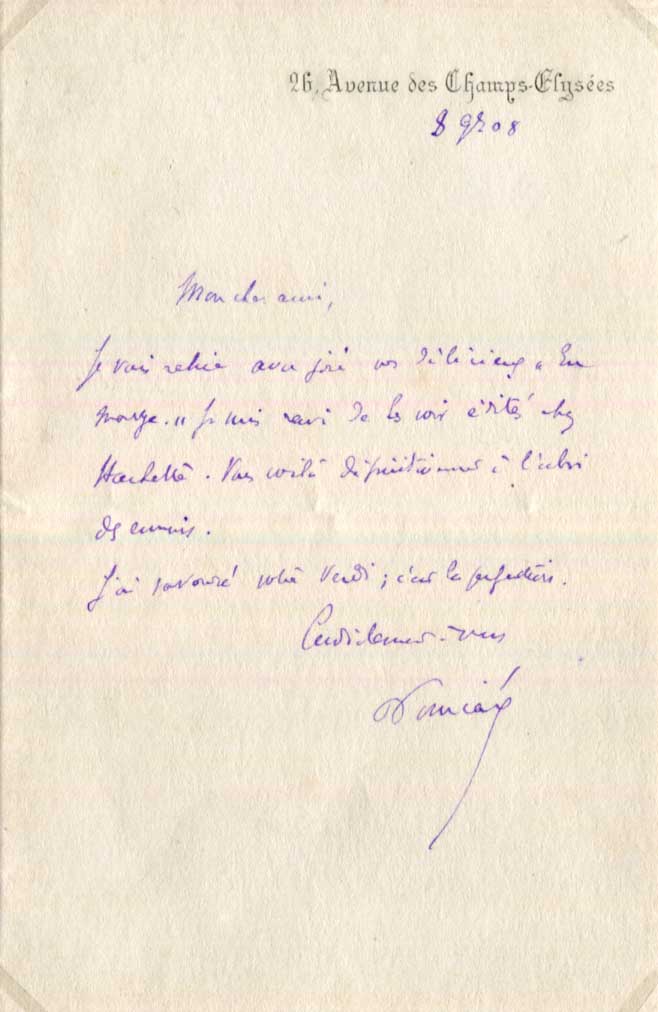 26, Avenue des Champs-Elysées
8 9bre 08
Mon cher ami,
Je vais relire avec joie vos délicieux "En
marge." Je suis ravi de les voir édités chez
Hachette. Vous voilà définitivement à l'abri
des ennuis.
J'ai savouré votre Verdi ; c'est la perfection.
Cordialement à vous